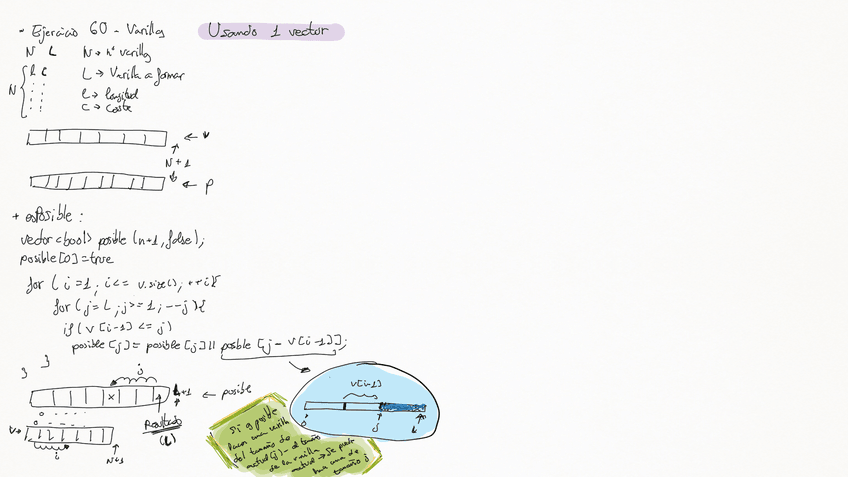 - Ejercicio 60 - Varillas
Usando 1 vector
N L N → nº varillas
L → Varilla a formar
N
l c
l → longitud
c → coste
← v
N+1
← p
+ esPosible :
vector<bool> posible (n+1, false);
posible[0] = true
for ( i = 1 ; i <= v.size() ; ++i){
for ( j = L ; j >= 1 ; --j ){
if ( v [i-1] <= j )
posible [j] = posible [j] || posible [j - v[i-1]];
}
}
j
x
+1
← posible
0
Resultado
(L)
v→
i
N+1
v[i-1]
0
j
L
Si es posible
hacer una varilla
del tamaño de
actual (j) - el tamaño
de la varilla
actual → Se puede
hacer una de
tamaño j